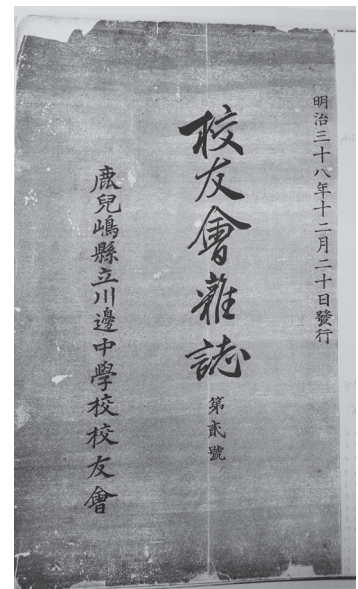 明治三十八年十二月二十日發行
校友會雜誌 第貳號
鹿兒嶋縣立川邊中學校校友會